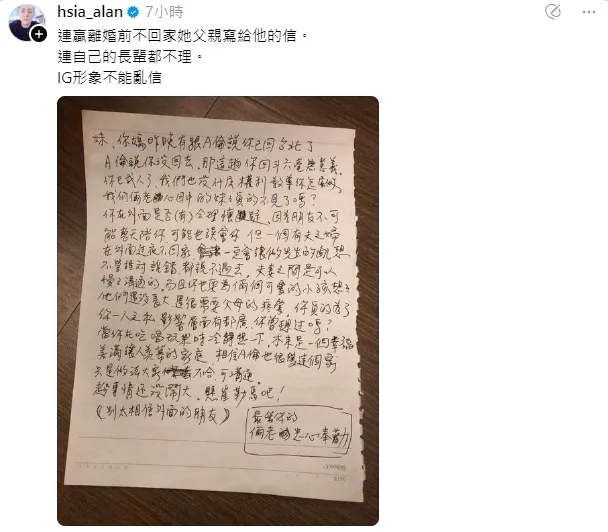 hsia_alan 7小時
連贏離婚前不回家她父親寫給他的信。
連自己的長輩都不理。
IG形象不能亂信
妹、你媽昨晚有跟A倫說你已回台北了
A倫說你沒回去、那這趟你回斗六毫無意義、
你已成人了、我們也沒什麼權利教導你怎麼做、
我們倆老心目中的妹子真的不見了嗎?
你在外面是否(有)合理
朋友不可
能整天陪你 可能也誤會你 但一個有夫之婦
在外面連夜不回家 一定會讓你先生的亂想
不管誰對誰錯、都說不過去、夫妻之間是可以
慢慢溝通的、而且你也要為倆個可愛的小孩想想
他們還沒長大、是很需要父母的疼愛、你真的為了
你一人之私、影響層面有都廣、你曾想過嗎?
當你在吃喝玩樂時冷靜想一下、本來是一個幸福
美滿讓人羨慕的家庭、相信A倫也很愛這個家
只是你倆
不合可溝通、
趁事情还沒鬧大、懸崖勒馬吧!
(別太相信外面的朋友)
最愛你的
倆老 忠心奉勸